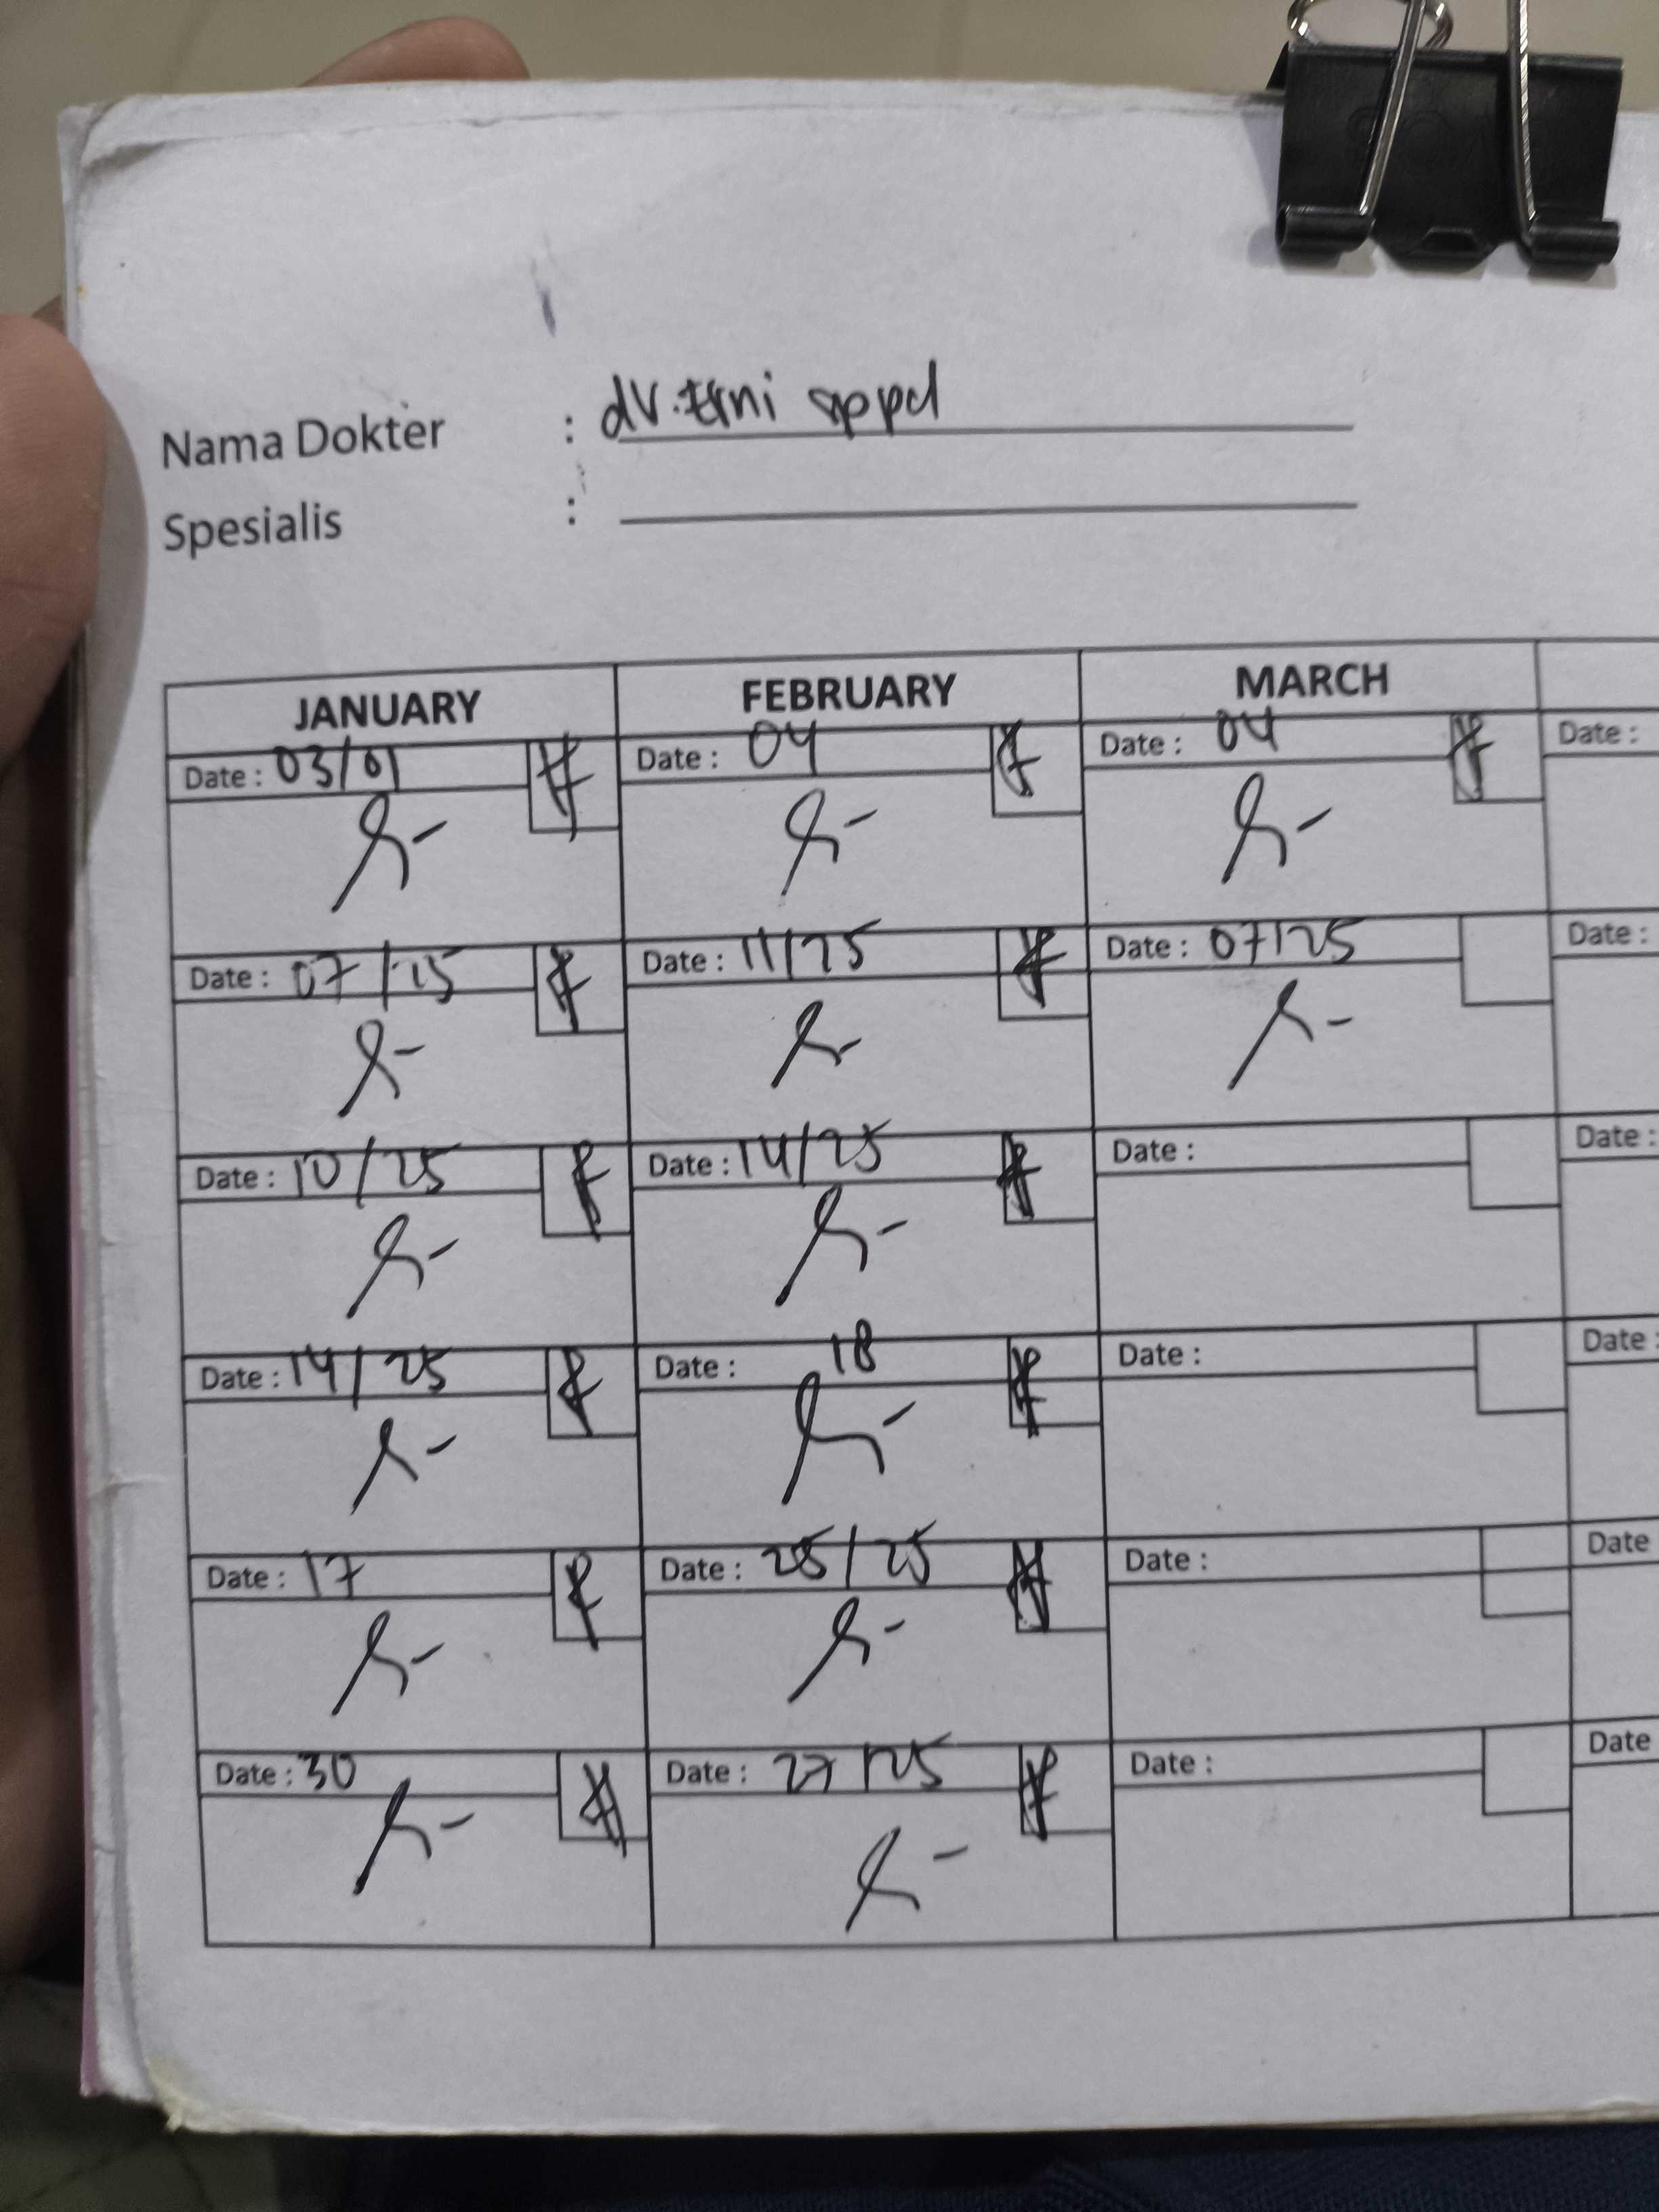 Nama Dokter : dr. Erni sppd
Spesialis :
JANUARY FEBRUARY MARCH
Date : 03/01 Date : 04 Date : 04 Date :
Date : 07/25 Date : 11/25 Date : 07/25 Date :
Date : 10/25 Date : 14/25 Date : Date :
Date : 14/25 Date : 18 Date : Date :
Date : 17 Date : 25/25 Date : Date
Date : 30 Date : 27/25 Date : Date